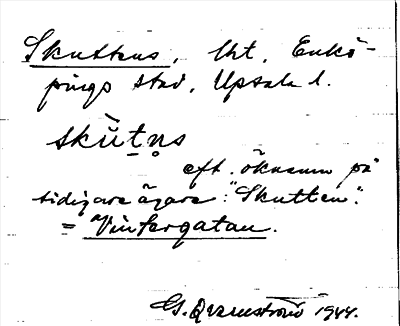 Skuttens, kvt, Enkö-
pings stad, Upsala l.
skùt̯n̥s
eft. öknamn på
tidigare ägare: "Skutten".
= Vintergatan.
G. 1944.